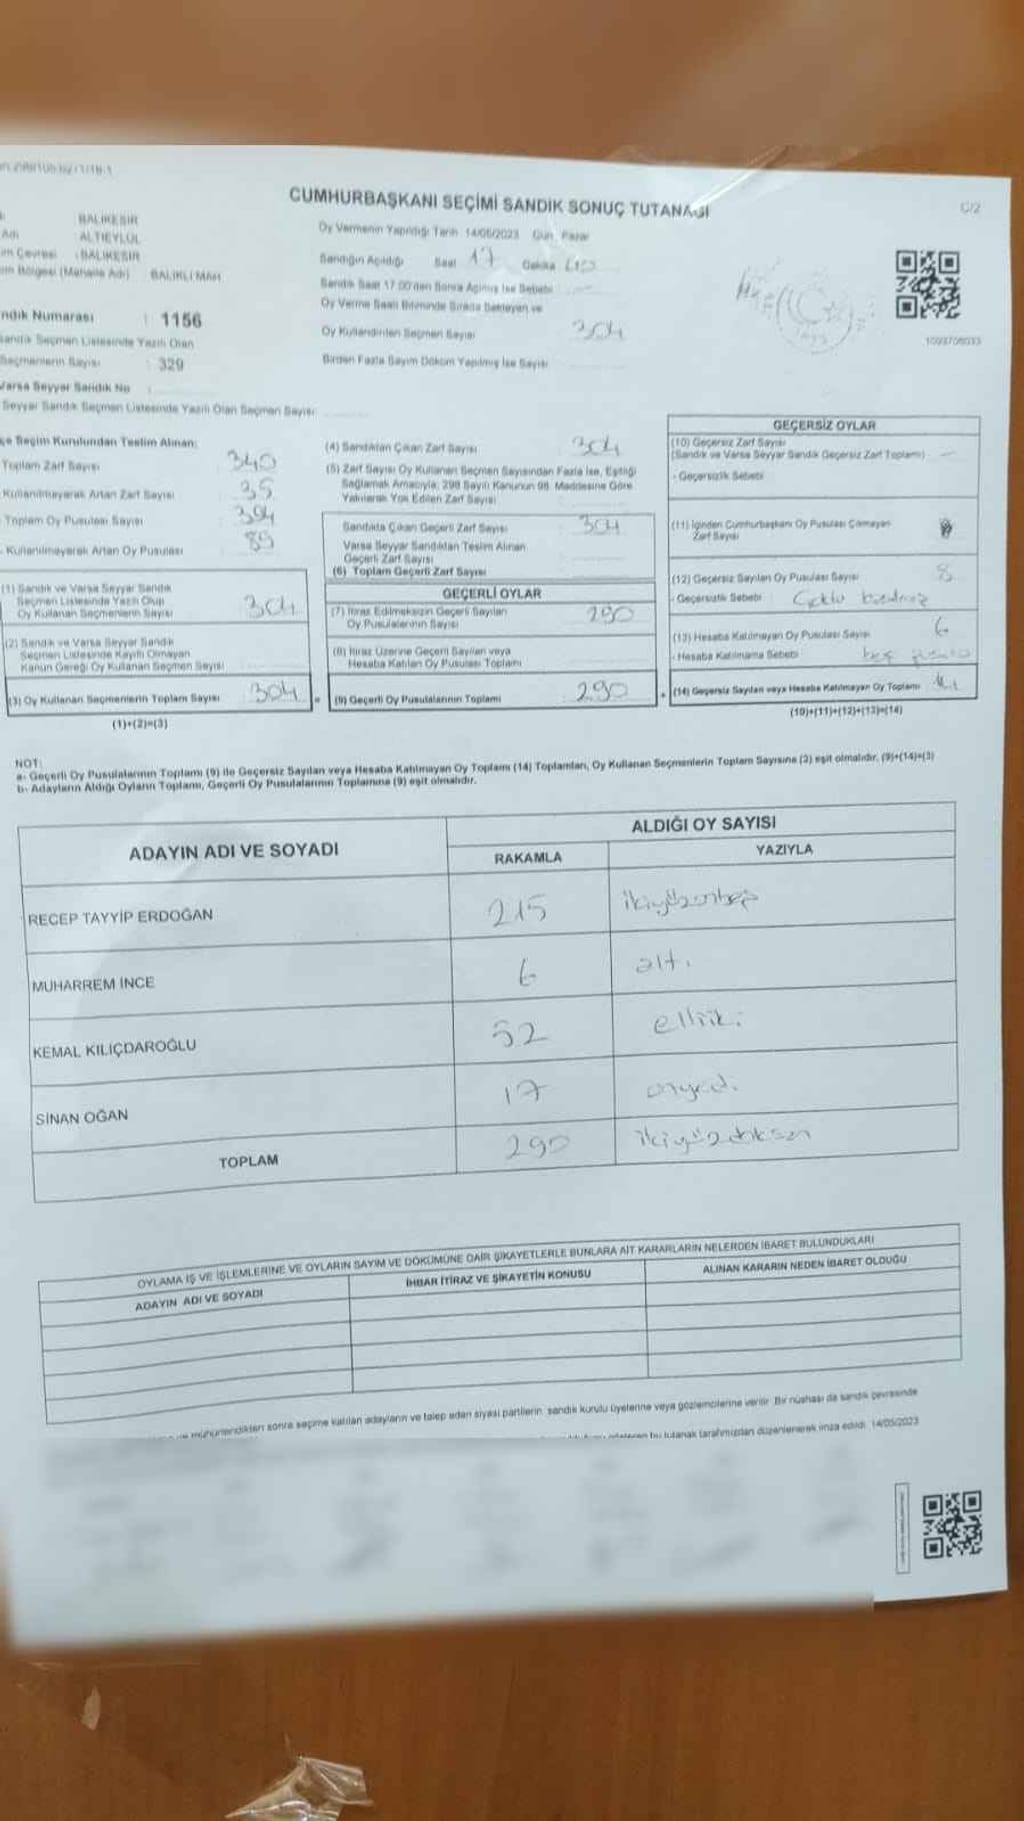 CUMHURBAŞKANI SEÇİMİ SANDIK SONUÇ TUTANAĞI
C/2
BALIKESİR
ALTIEYLÜL
BALIKESİR
BALIKLI MAH.
Sandık Numarası : 1156
Seçmenlerin Sayısı : 329
Varsa Seyyar Sandık No :
Seyyar Sandık Seçmen Listesinde Yazılı Olan Seçmen Sayısı
Oy Vermenin Yapıldığı Tarih 14/05/2023 Gün Pazar
Sandığın Açıldığı Saat 17 Dakika
Sandık Saat 17.00'den Sonra Açılmış İse Sebebi
Oy Verme Saati Bitiminde Sırada Bekleyen ve
Oy Kullandırılan Seçmen Sayısı 304
Birden Fazla Sayım Döküm Yapılmış İse Sayısı
İlçe Seçim Kurulundan Teslim Alınan:
Toplam Zarf Sayısı 340
Kullanılmayarak Artan Zarf Sayısı 35
Toplam Oy Pusulası Sayısı 394
Kullanılmayarak Artan Oy Pusulası 89
(1) Sandık ve Varsa Seyyar Sandık
Seçmen Listesinde Yazılı Olup
Oy Kullanan Seçmenlerin Sayısı 304
(2) Sandık ve Varsa Seyyar Sandık
Seçmen Listesinde Kayıtlı Olmayan
Kanun Gereği Oy Kullanan Seçmen Sayısı
(3) Oy Kullanan Seçmenlerin Toplam Sayısı 304
(1)+(2)=(3)
(4) Sandıktan Çıkan Zarf Sayısı 304
(5) Zarf Sayısı Oy Kullanan Seçmen Sayısından Fazla İse, Eşitliği
Sağlamak Amacıyla, 298 Sayılı Kanunun 98. Maddesine Göre
Yakılarak Yok Edilen Zarf Sayısı
Sandıkta Çıkan Geçerli Zarf Sayısı 304
Varsa Seyyar Sandıktan Teslim Alınan
Geçerli Zarf Sayısı
(6) Toplam Geçerli Zarf Sayısı
GEÇERLİ OYLAR
(7) İtiraz Edilmeksizin Geçerli Sayılan
Oy Pusulalarının Sayısı 290
(8) İtiraz Üzerine Geçerli Sayılan veya
Hesaba Katılan Oy Pusulası Toplamı
(9) Geçerli Oy Pusulalarının Toplamı 290
GEÇERSİZ OYLAR
(10) Geçersiz Zarf Sayısı
(Sandık ve Varsa Seyyar Sandık Geçersiz Zarf Toplamı)
- Geçersizlik Sebebi
(11) İçinden Cumhurbaşkanı Oy Pusulası Çıkmayan
Zarf Sayısı
(12) Geçersiz Sayılan Oy Pusulası Sayısı 8
- Geçersizlik Sebebi :
(13) Hesaba Katılmayan Oy Pusulası Sayısı 6
- Hesaba Katılmama Sebebi boş
(14) Geçersiz Sayılan veya Hesaba Katılmayan Oy Toplamı
(10)+(11)+(12)+(13)=(14)
NOT:
a- Geçerli Oy Pusulalarının Toplamı (9) ile Geçersiz Sayılan veya Hesaba Katılmayan Oy Toplamı (14) Toplamları, Oy Kullanan Seçmenlerin Toplam Sayısına (3) eşit olmalıdır. (9)+(14)=(3)
b- Adayların Aldığı Oyların Toplamı, Geçerli Oy Pusulalarının Toplamına (9) eşit olmalıdır.
ADAYIN ADI VE SOYADI
ALDIĞI OY SAYISI
RAKAMLA
YAZIYLA
RECEP TAYYİP ERDOĞAN 215 ikiyüzonbeş
MUHARREM İNCE 6 altı
KEMAL KILIÇDAROĞLU 52 elliiki
SİNAN OĞAN 17 onyedi
TOPLAM 290 ikiyüzdoksan
OYLAMA İŞ VE İŞLEMLERİNE VE OYLARIN SAYIM VE DÖKÜMÜNE DAİR ŞİKAYETLERLE BUNLARA AİT KARARLARIN NELERDEN İBARET BULUNDUKLARI
ADAYIN ADI VE SOYADI
İHBAR İTİRAZ VE ŞİKAYETİN KONUSU
ALINAN KARARIN NEDEN İBARET OLDUĞU
mühürlendikten sonra seçime katılan adayların ve talep eden siyasi partilerin sandık kurulu üyelerine veya gözlemcilerine verilir. Bir nüshası da sandık çevresinde
bu tutanak tarafımızdan düzenlenerek imza edildi. 14/05/2023